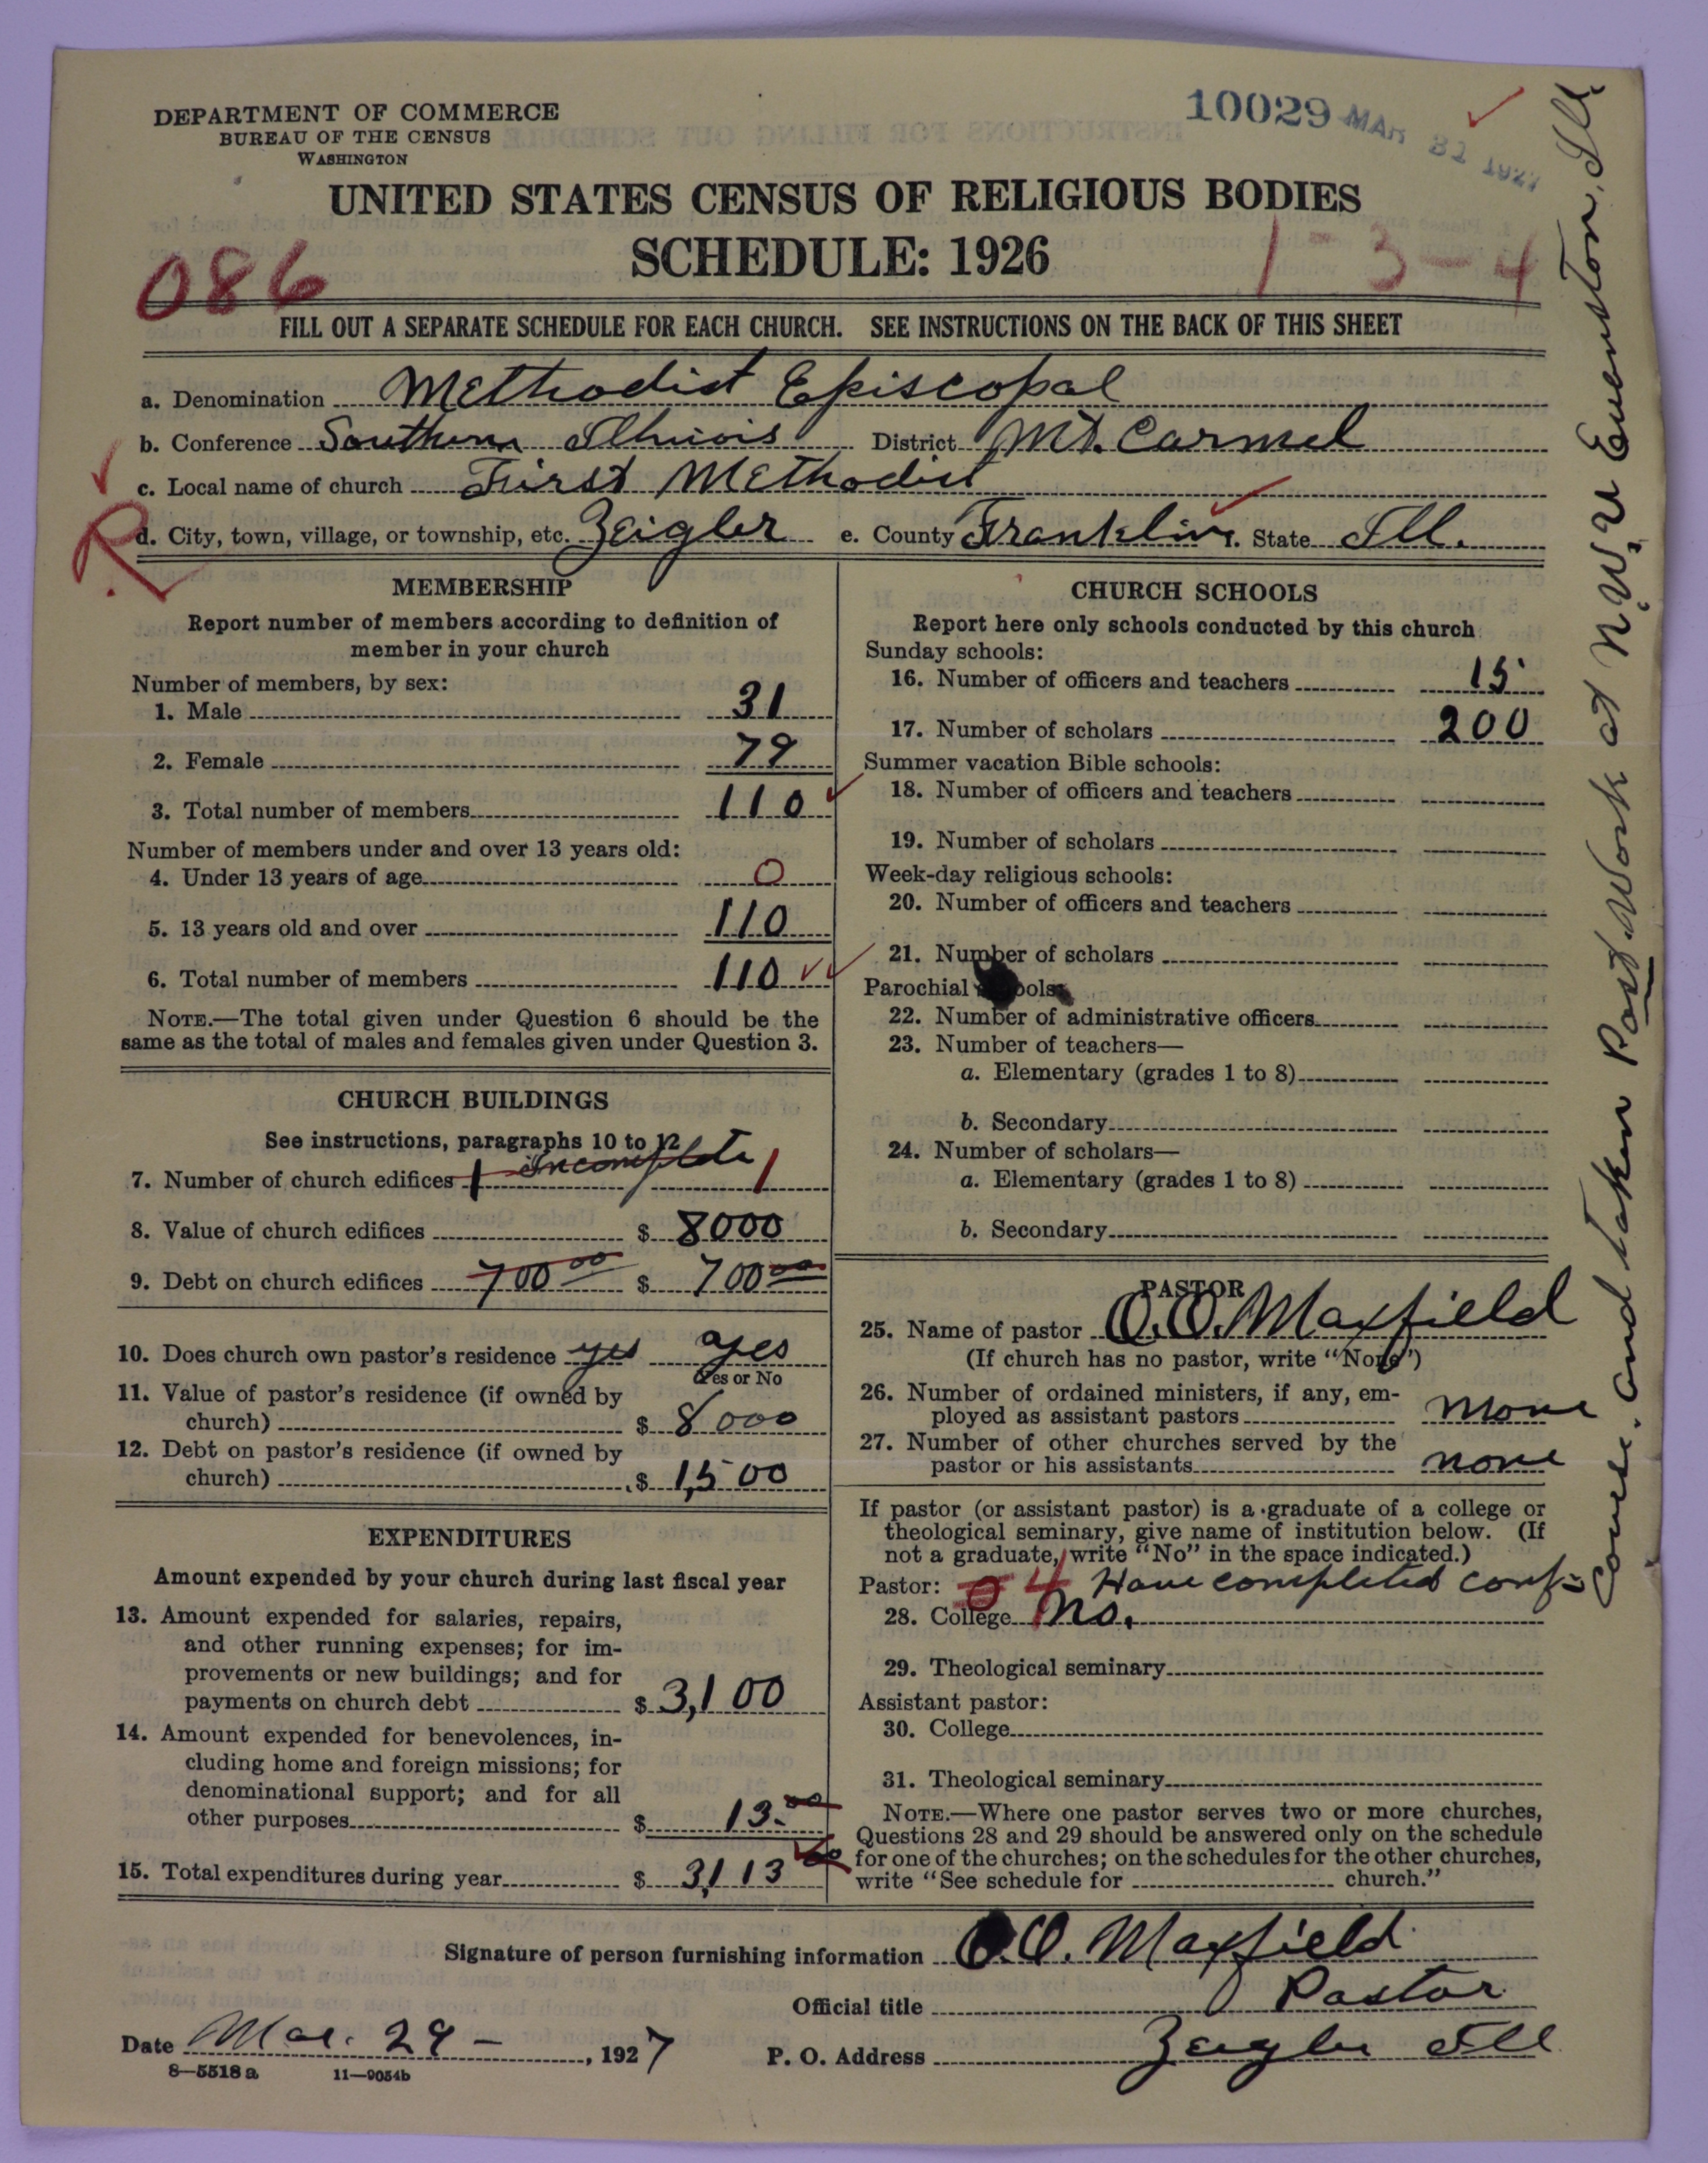 DEPARTMENT OF COMMERCE
BUREAU OF THE CENSUS
WASHINGTON
10029 MAR 31 1927
UNITED STATES CENSUS OF RELIGIOUS BODIES
SCHEDULE: 1926
086
1-3-4
FILL OUT A SEPARATE SCHEDULE FOR EACH CHURCH. SEE INSTRUCTIONS ON THE BACK OF THIS SHEET
a. Denomination Methodist Episcopal
b. Conference Southern Illinois District Mt. Carmel
c. Local name of church First Methodist
R
d. City, town, village, or township, etc. Zeigler e. County Franklin. State Ill.
MEMBERSHIP
Report number of members according to definition of
member in your church
Number of members, by sex:
1. Male 31
2. Female 79
3. Total number of members 110
Number of members under and over 13 years old:
4. Under 13 years of age 0
5. 13 years old and over 110
6. Total number of members 110
NOTE.—The total given under Question 6 should be the
same as the total of males and females given under Question 3.
CHURCH BUILDINGS
See instructions, paragraphs 10 to 12
7. Number of church edifices 1 incomplete 1
8. Value of church edifices $ 8000
9. Debt on church edifices 700 00 $ 700 00
10. Does church own pastor's residence yes yes
Yes or No
11. Value of pastor's residence (if owned by
church) $ 8000
12. Debt on pastor's residence (if owned by
church) $ 1,500
EXPENDITURES
Amount expended by your church during last fiscal year
13. Amount expended for salaries, repairs,
and other running expenses; for im-
provements or new buildings; and for
payments on church debt $ 3,100
14. Amount expended for benevolences, in-
cluding home and foreign missions; for
denominational support; and for all
other purposes $ 13.00
15. Total expenditures during year $ 3,113 00
CHURCH SCHOOLS
Report here only schools conducted by this church
Sunday schools:
16. Number of officers and teachers 15
17. Number of scholars 200
Summer vacation Bible schools:
18. Number of officers and teachers
19. Number of scholars
Week-day religious schools:
20. Number of officers and teachers
21. Number of scholars
Parochial schools:
22. Number of administrative officers
23. Number of teachers—
a. Elementary (grades 1 to 8)
b. Secondary
24. Number of scholars—
a. Elementary (grades 1 to 8)
b. Secondary
PASTOR
25. Name of pastor O.O. Maxfield
(If church has no pastor, write "None")
26. Number of ordained ministers, if any, em-
ployed as assistant pastors none
27. Number of other churches served by the
pastor or his assistants none
If pastor (or assistant pastor) is a graduate of a college or
theological seminary, give name of institution below. (If
not a graduate, write "No" in the space indicated.)
Pastor: 0 4 Have completed conf=
28. College No.
29. Theological seminary
Assistant pastor:
30. College
31. Theological seminary
NOTE.—Where one pastor serves two or more churches,
Questions 28 and 29 should be answered only on the schedule
for one of the churches; on the schedules for the other churches,
write "See schedule for church."
course. and taken Post. Work at N.W.U Evenston, Ill.
Signature of person furnishing information O.O. Maxfield
Official title Pastor
Date Mar. 29 - , 1927 P. O. Address Zeigler Ill
8—5518 a 11—9054b